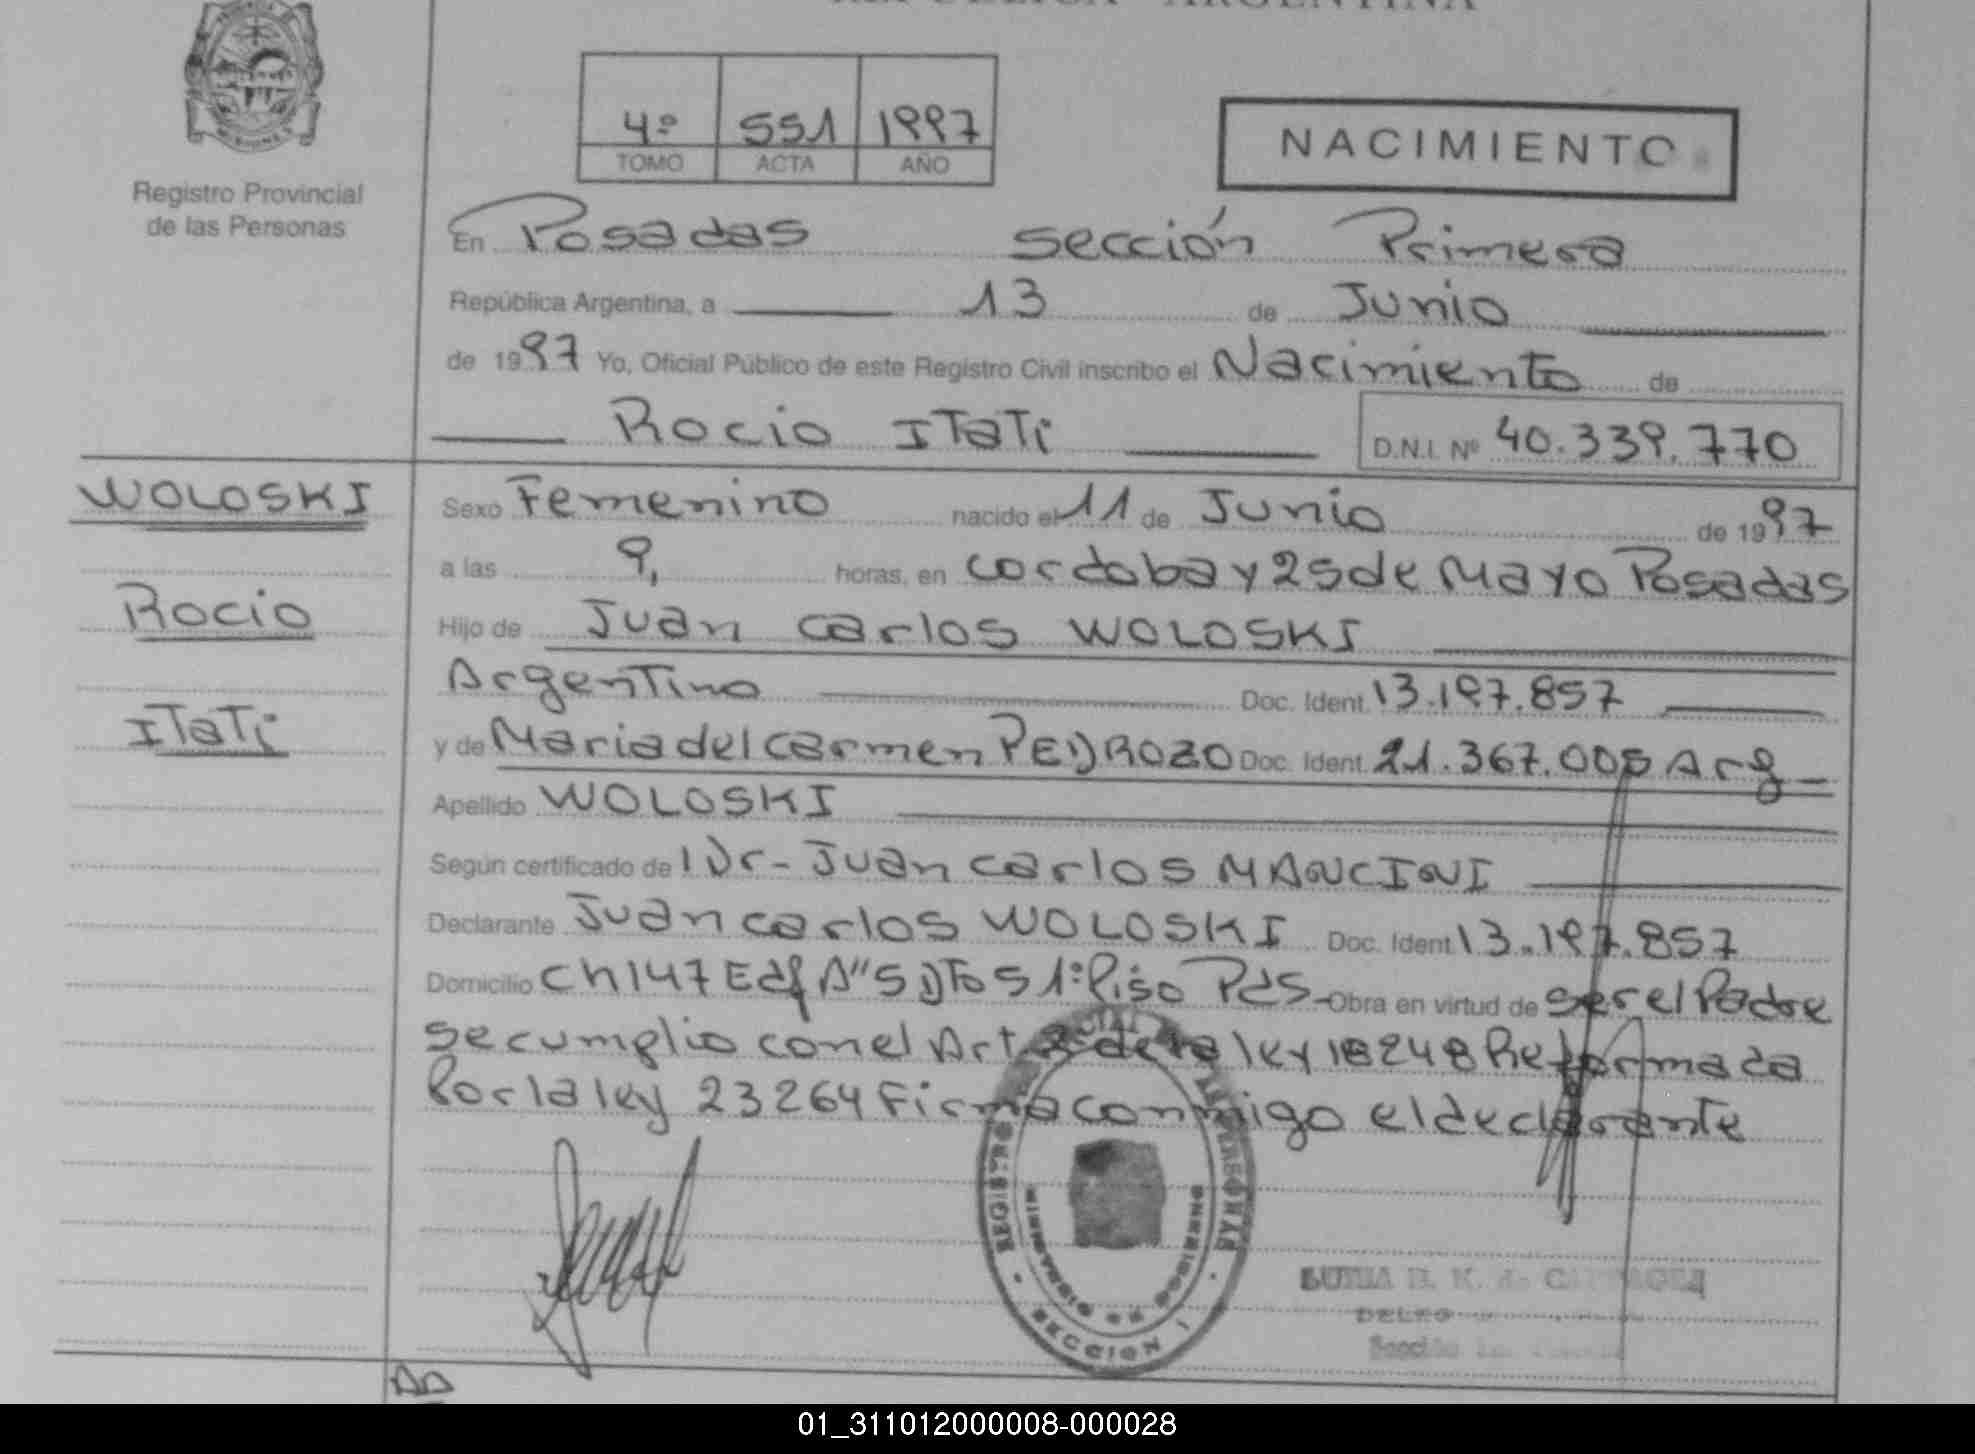 REPUBLICA ARGENTINA
4º 551 1997
TOMO ACTA AÑO
NACIMIENTO
Registro Provincial
de las Personas
En Posadas sección Primera
República Argentina, a 13 de Junio
de 1997 Yo, Oficial Público de este Registro Civil inscribo el Nacimiento de
Rocio ITaTi D.N.I. Nº 40.339.770
WOLOSKI
Rocio
ITaTi
Sexo Femenino nacido el 11 de Junio de 1997
a las 9, horas, en cordoba y 25 de Mayo Posadas
Hijo de Juan carlos WOLOSKI
Argentino Doc. Ident. 13.197.857
y de Maria del carmen PEDROZO Doc. Ident. 21.367.005 Arg
Apellido WOLOSKI
Según certificado de l Dr- Juan carlos MANCINI
Declarante Juan carlos WOLOSKI Doc. Ident. 13.197.857
Domicilio Ch 147 Edf A"5 DTo 5 1º Piso Pds- Obra en virtud de ser el Padre
se cumplio con el Art 2 de la ley 18248 Reformada
Por la ley 23264 Firma conmigo el declarante
REGISTRO PERSONAS
MINISTERIO DE GOBIERNO
SECCION 1
DELEG
Sección
01_311012000008-000028